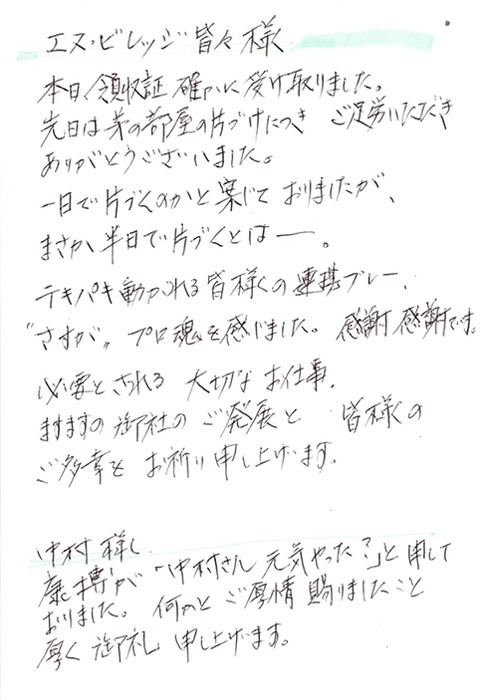 エヌ・ビレッジ皆々様
本日、領収証 確かに受け取りました。
先日は弟の部屋の片づけにつき ご足労いただき
ありがとうございました。
一日で片づくのかと案じて おりましたが、
まさか半日で片づくとは――。
テキパキ動かれる皆様の連携プレー、
"さすが" プロ魂を感じました。感謝感謝です。
必要とされる 大切な お仕事、
ますますの 御社の ご発展と 皆様の
ご多幸を お祈り申し上げます。
中村様
康博が「中村さん 元気やった?」と申して
おりました。何かと ご厚情 賜りましたこと
厚く 御礼 申し上げます。